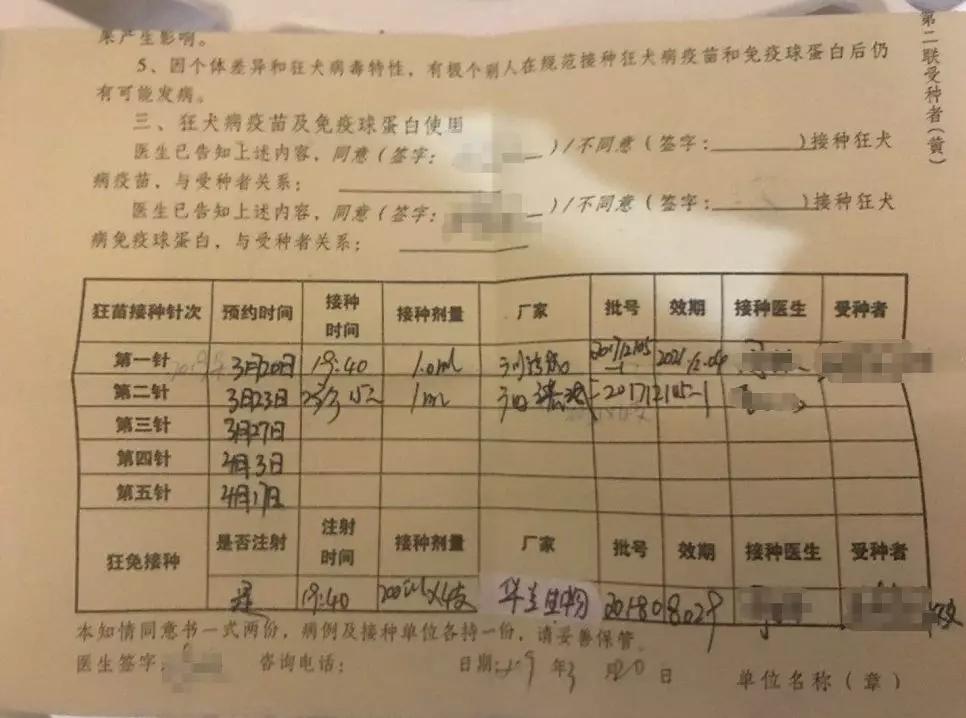 果产生影响。
5、因个体差异和狂犬病毒特性，有极个别人在规范接种狂犬病疫苗和免疫球蛋白后仍
有可能发病。
三、狂犬病疫苗及免疫球蛋白使用
医生已告知上述内容，同意（签字：）/不同意（签字：________)接种狂犬
病疫苗，与受种者关系：________
医生已告知上述内容，同意（签字：）/不同意（签字：________)接种狂犬
病免疫球蛋白，与受种者关系：________
第二联受种者(黄)
狂苗接种针次 预约时间 接种时间 接种剂量 厂家 批号 效期 接种医生 受种者
第一针 3月20日 19:40 1.0ml 2021.12.04
第二针 3月23日 1ml
第三针 3月27日
第四针 4月3日
第五针 4月17日
狂免接种 是否注射 注射时间 接种剂量 厂家 批号 效期 接种医生 受种者
是 19:40 华兰生物 20180 8029
本知情同意书一式两份，病例及接种单位各持一份，请妥善保管。
医生签字： 咨询电话： 日期: 19 年 3 月 20 日 单位名称（章）